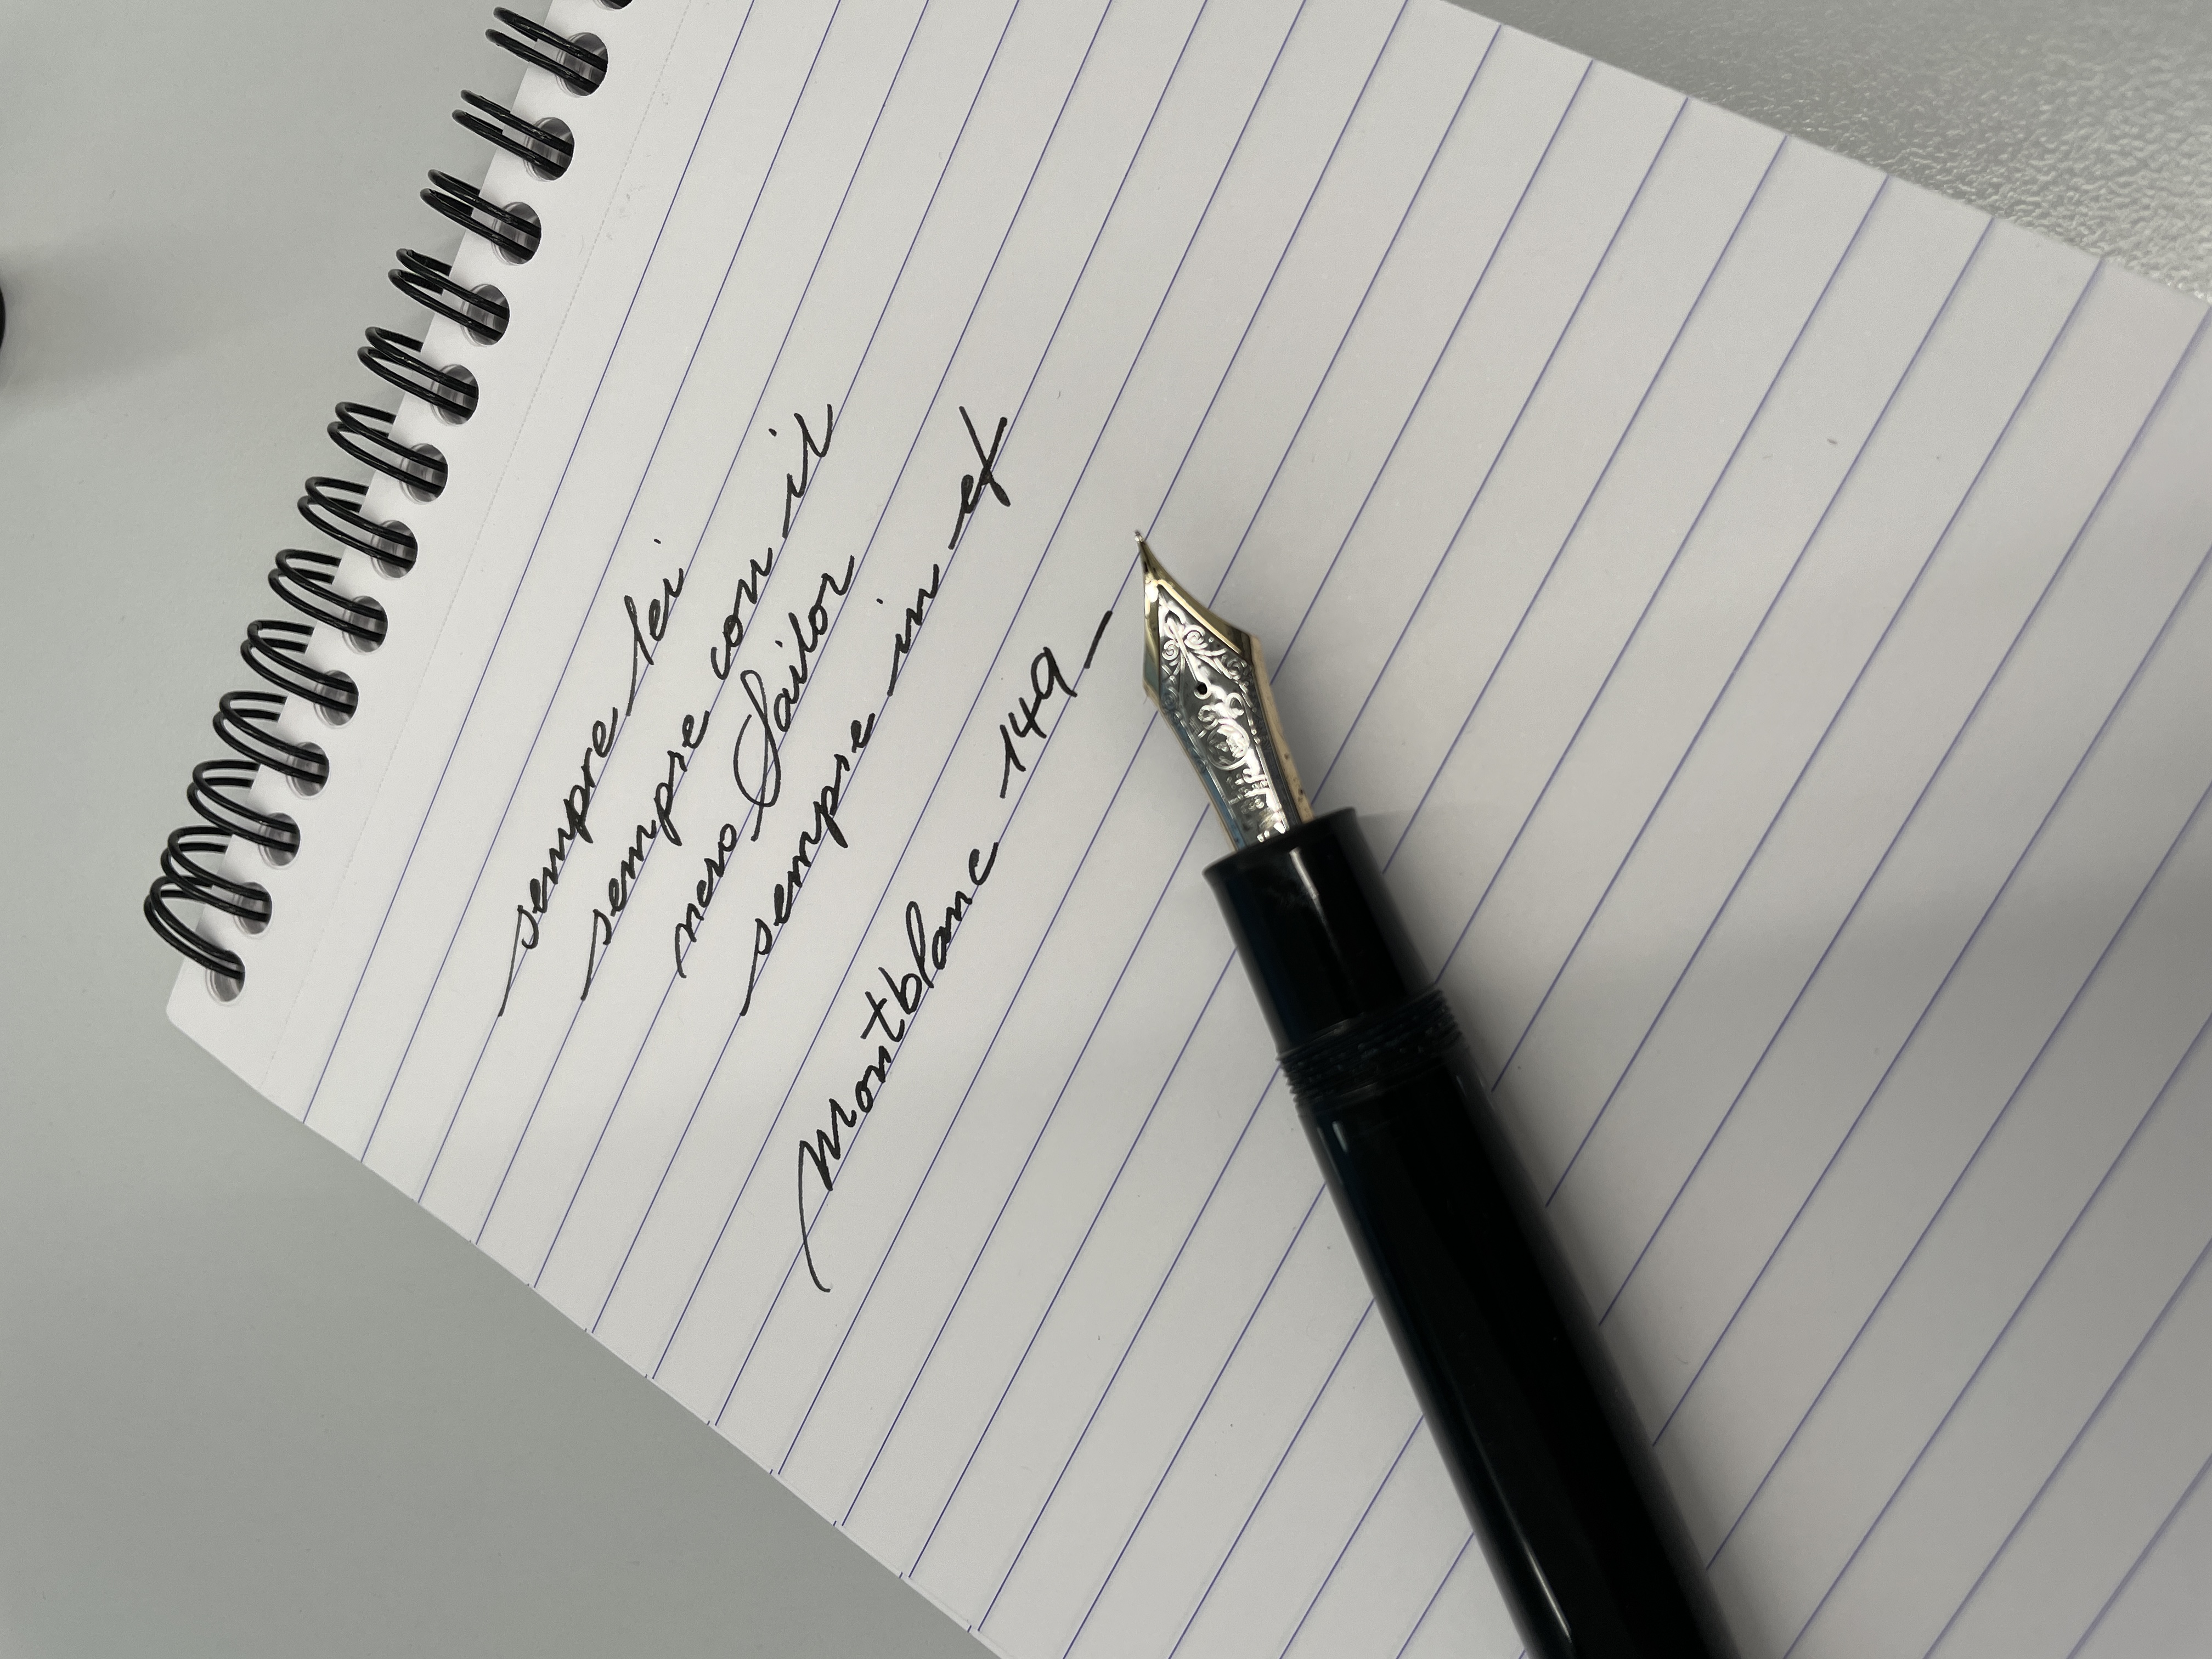 sempre lei
sempre con il
nero Sailor
sempre in ef
Montblanc 149